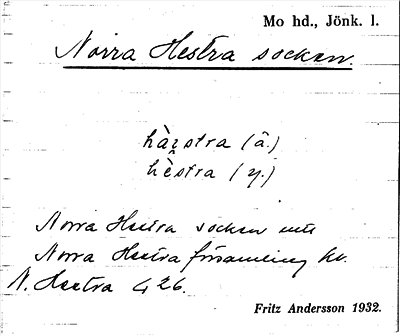 Mo hd., Jönk. l.
Norra Hestra socken.
hæ̀stra (ä.)
hè̂stra (y.)
Norra Hestra socken
Norra Hestra församling
N. Hestra G 26.
Fritz Andersson 1932.